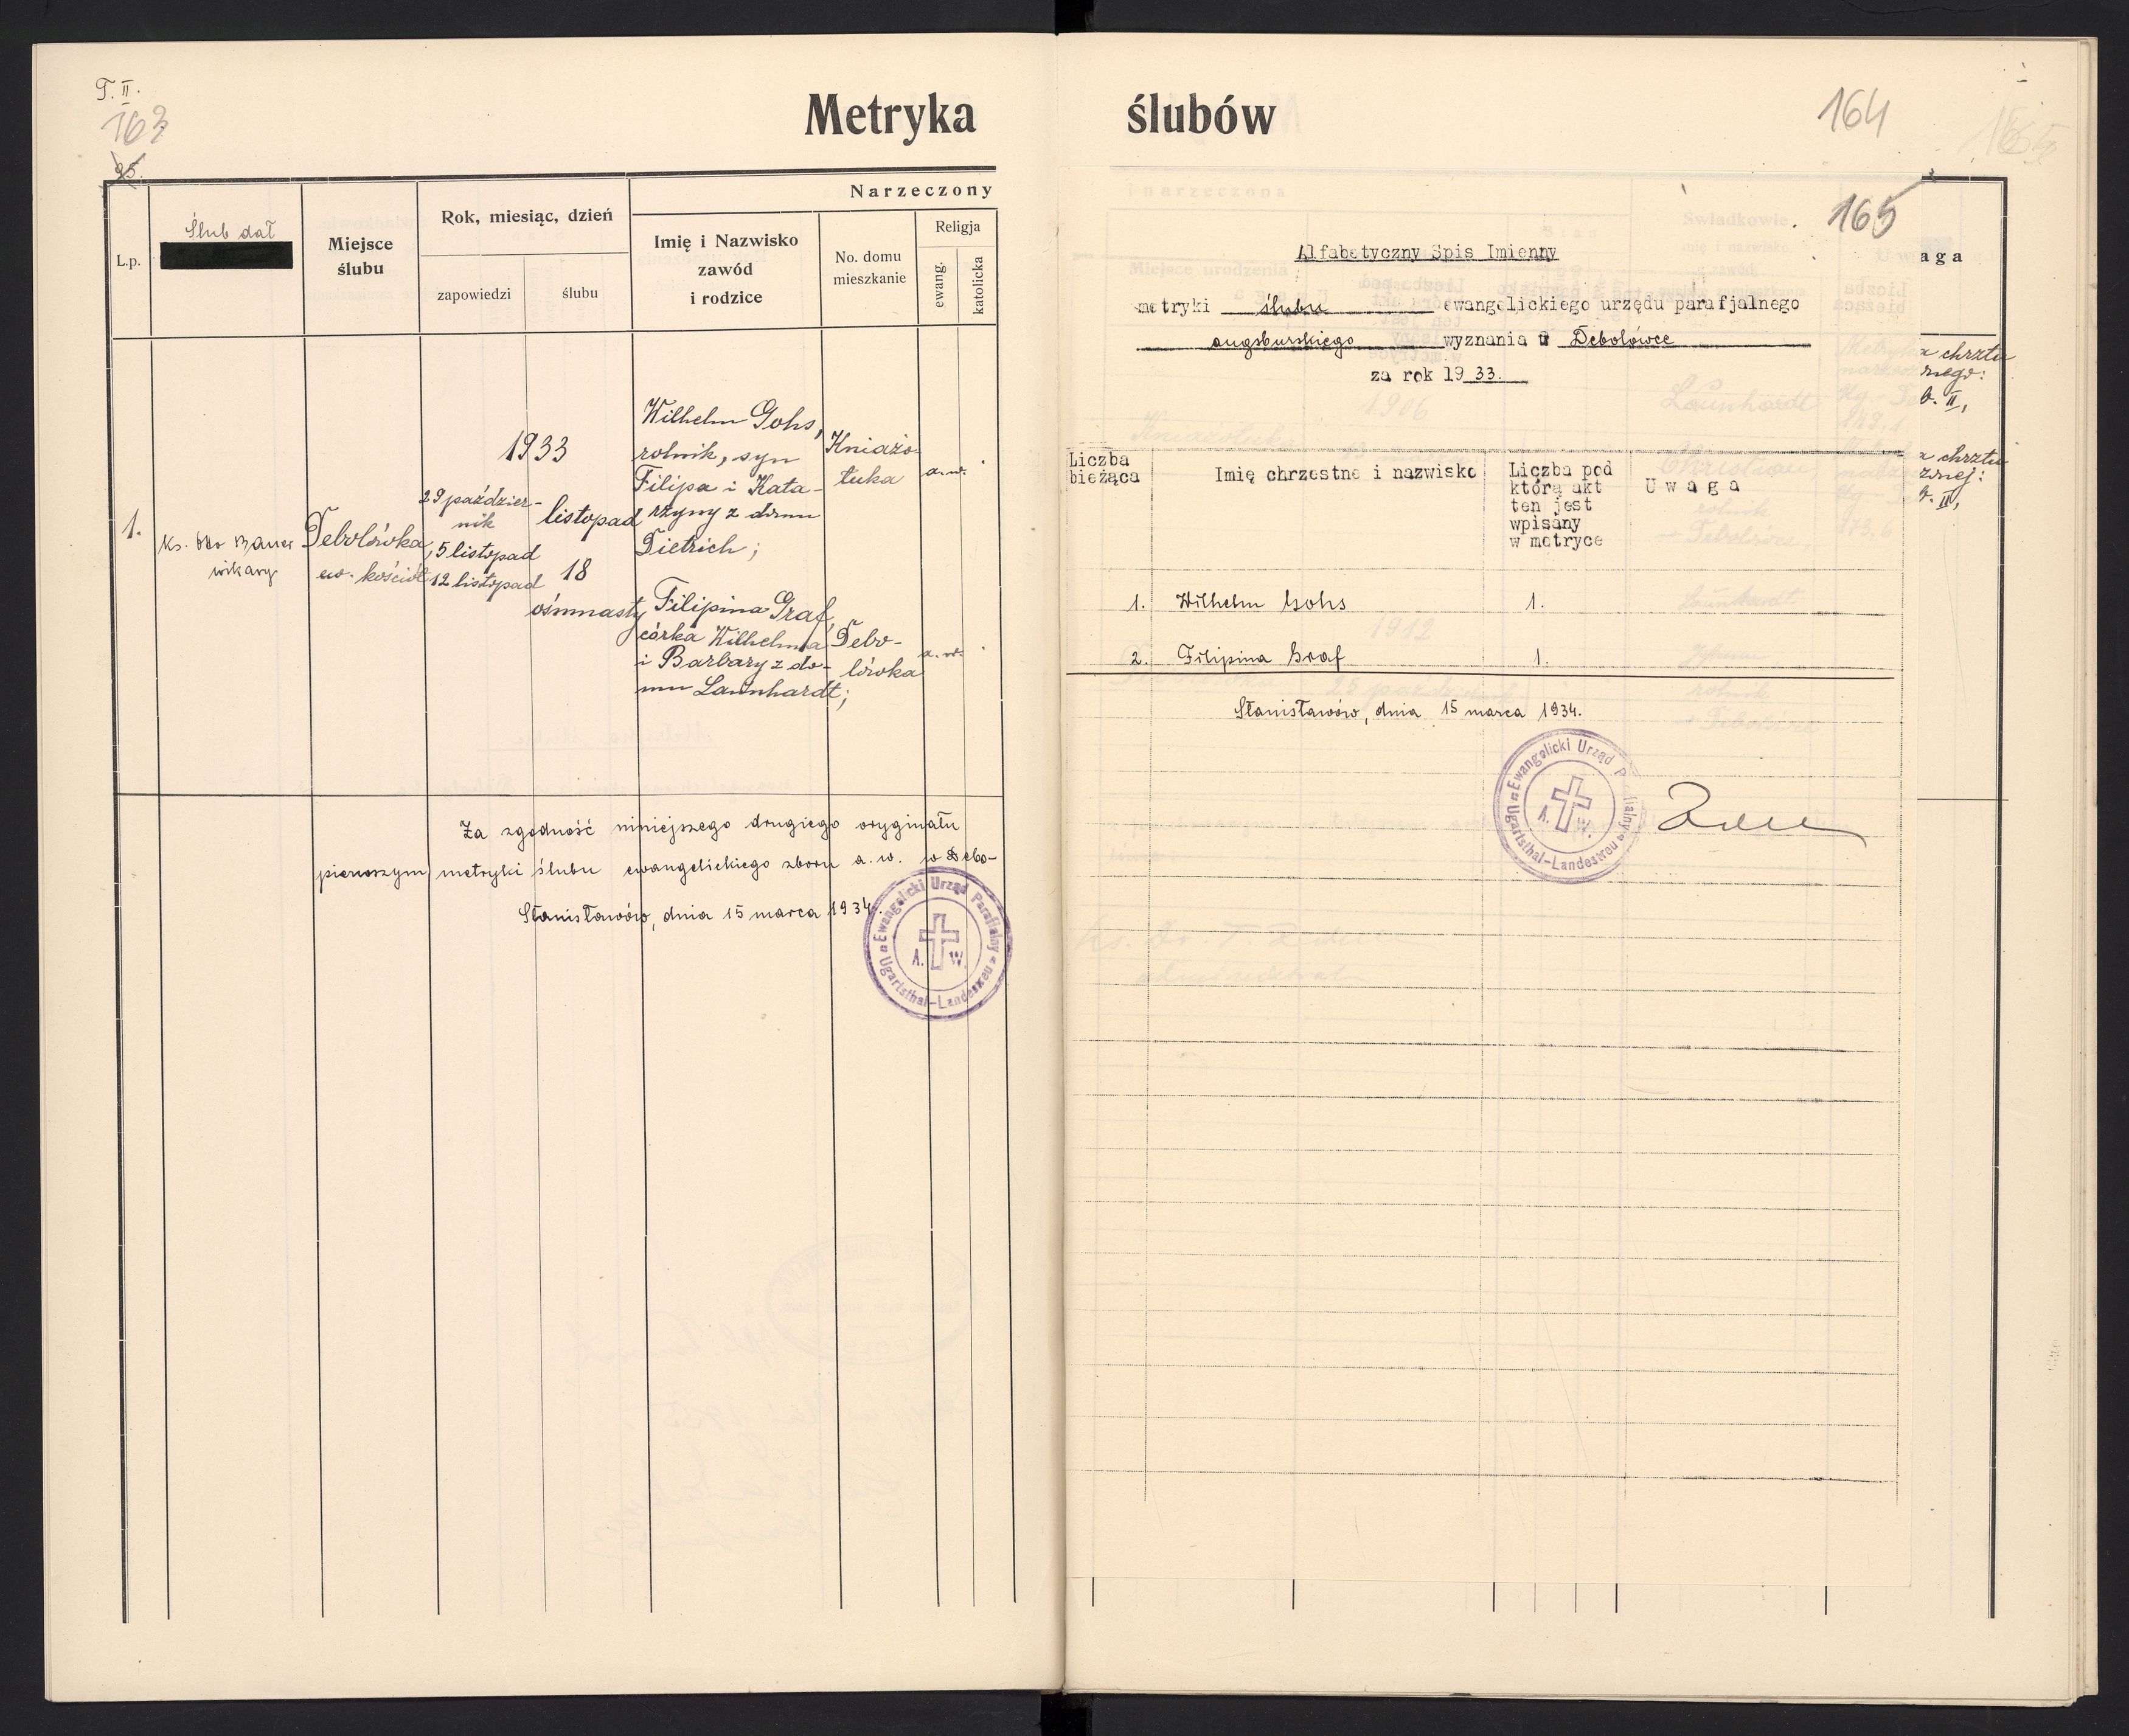 T. II.
163
95.
Metryka ślubów
164
165
L.p.
Ślub dał
Miejsce
ślubu
Rok, miesiąc, dzień
zapowiedzi
ślubu
Narzeczony
Imię i Nazwisko
zawód
i rodzice
No. domu
mieszkanie
Religja
ewang.
katolicka
1.
wikary
Debolówka,
ew. kościół
1933
29 paździer-
nik
5 listopad
12 listopad
listopad
18
ośmnasty
Wilhelm Gohs,
rolnik, syn
Filipa i Kata-
rzyny z domu
Dietrich;
Kniażo-
łuka
a.w.
Filipina Graf,
córka Wilhelma
i Barbary z do-
mu Launhardt;
Debo-
lówka
a.w.
Za zgodność niniejszego drugiego oryginału
pierwszym metryki ślubu ewangelickiego zboru a. w. w Debo-
Stanisławów, dnia 15 marca 1934.
Ewangelicki Urząd Parafialny
Ugartsthal-Landestreu
A. W.
Alfabetyczny Spis Imienny
metryki ślubu ewangelickiego urzędu parafjalnego
augsburskiego wyznania w Debolówce
za rok 19 33.
Liczba
bieżąca
Imię chrzestne i nazwisko
Liczba pod
którą akt
ten jest
wpisany
w metryce
Uwaga
1. Wilhelm Gohs 1.
2. Filipina Graf 1.
Stanisławów, dnia 15 marca 1934.
Ewangelicki Urząd
Ugartsthal-Landestreu
A. W.
aga
z chrztu
nego:
b. II,
z chrztu
znej:
b. II,